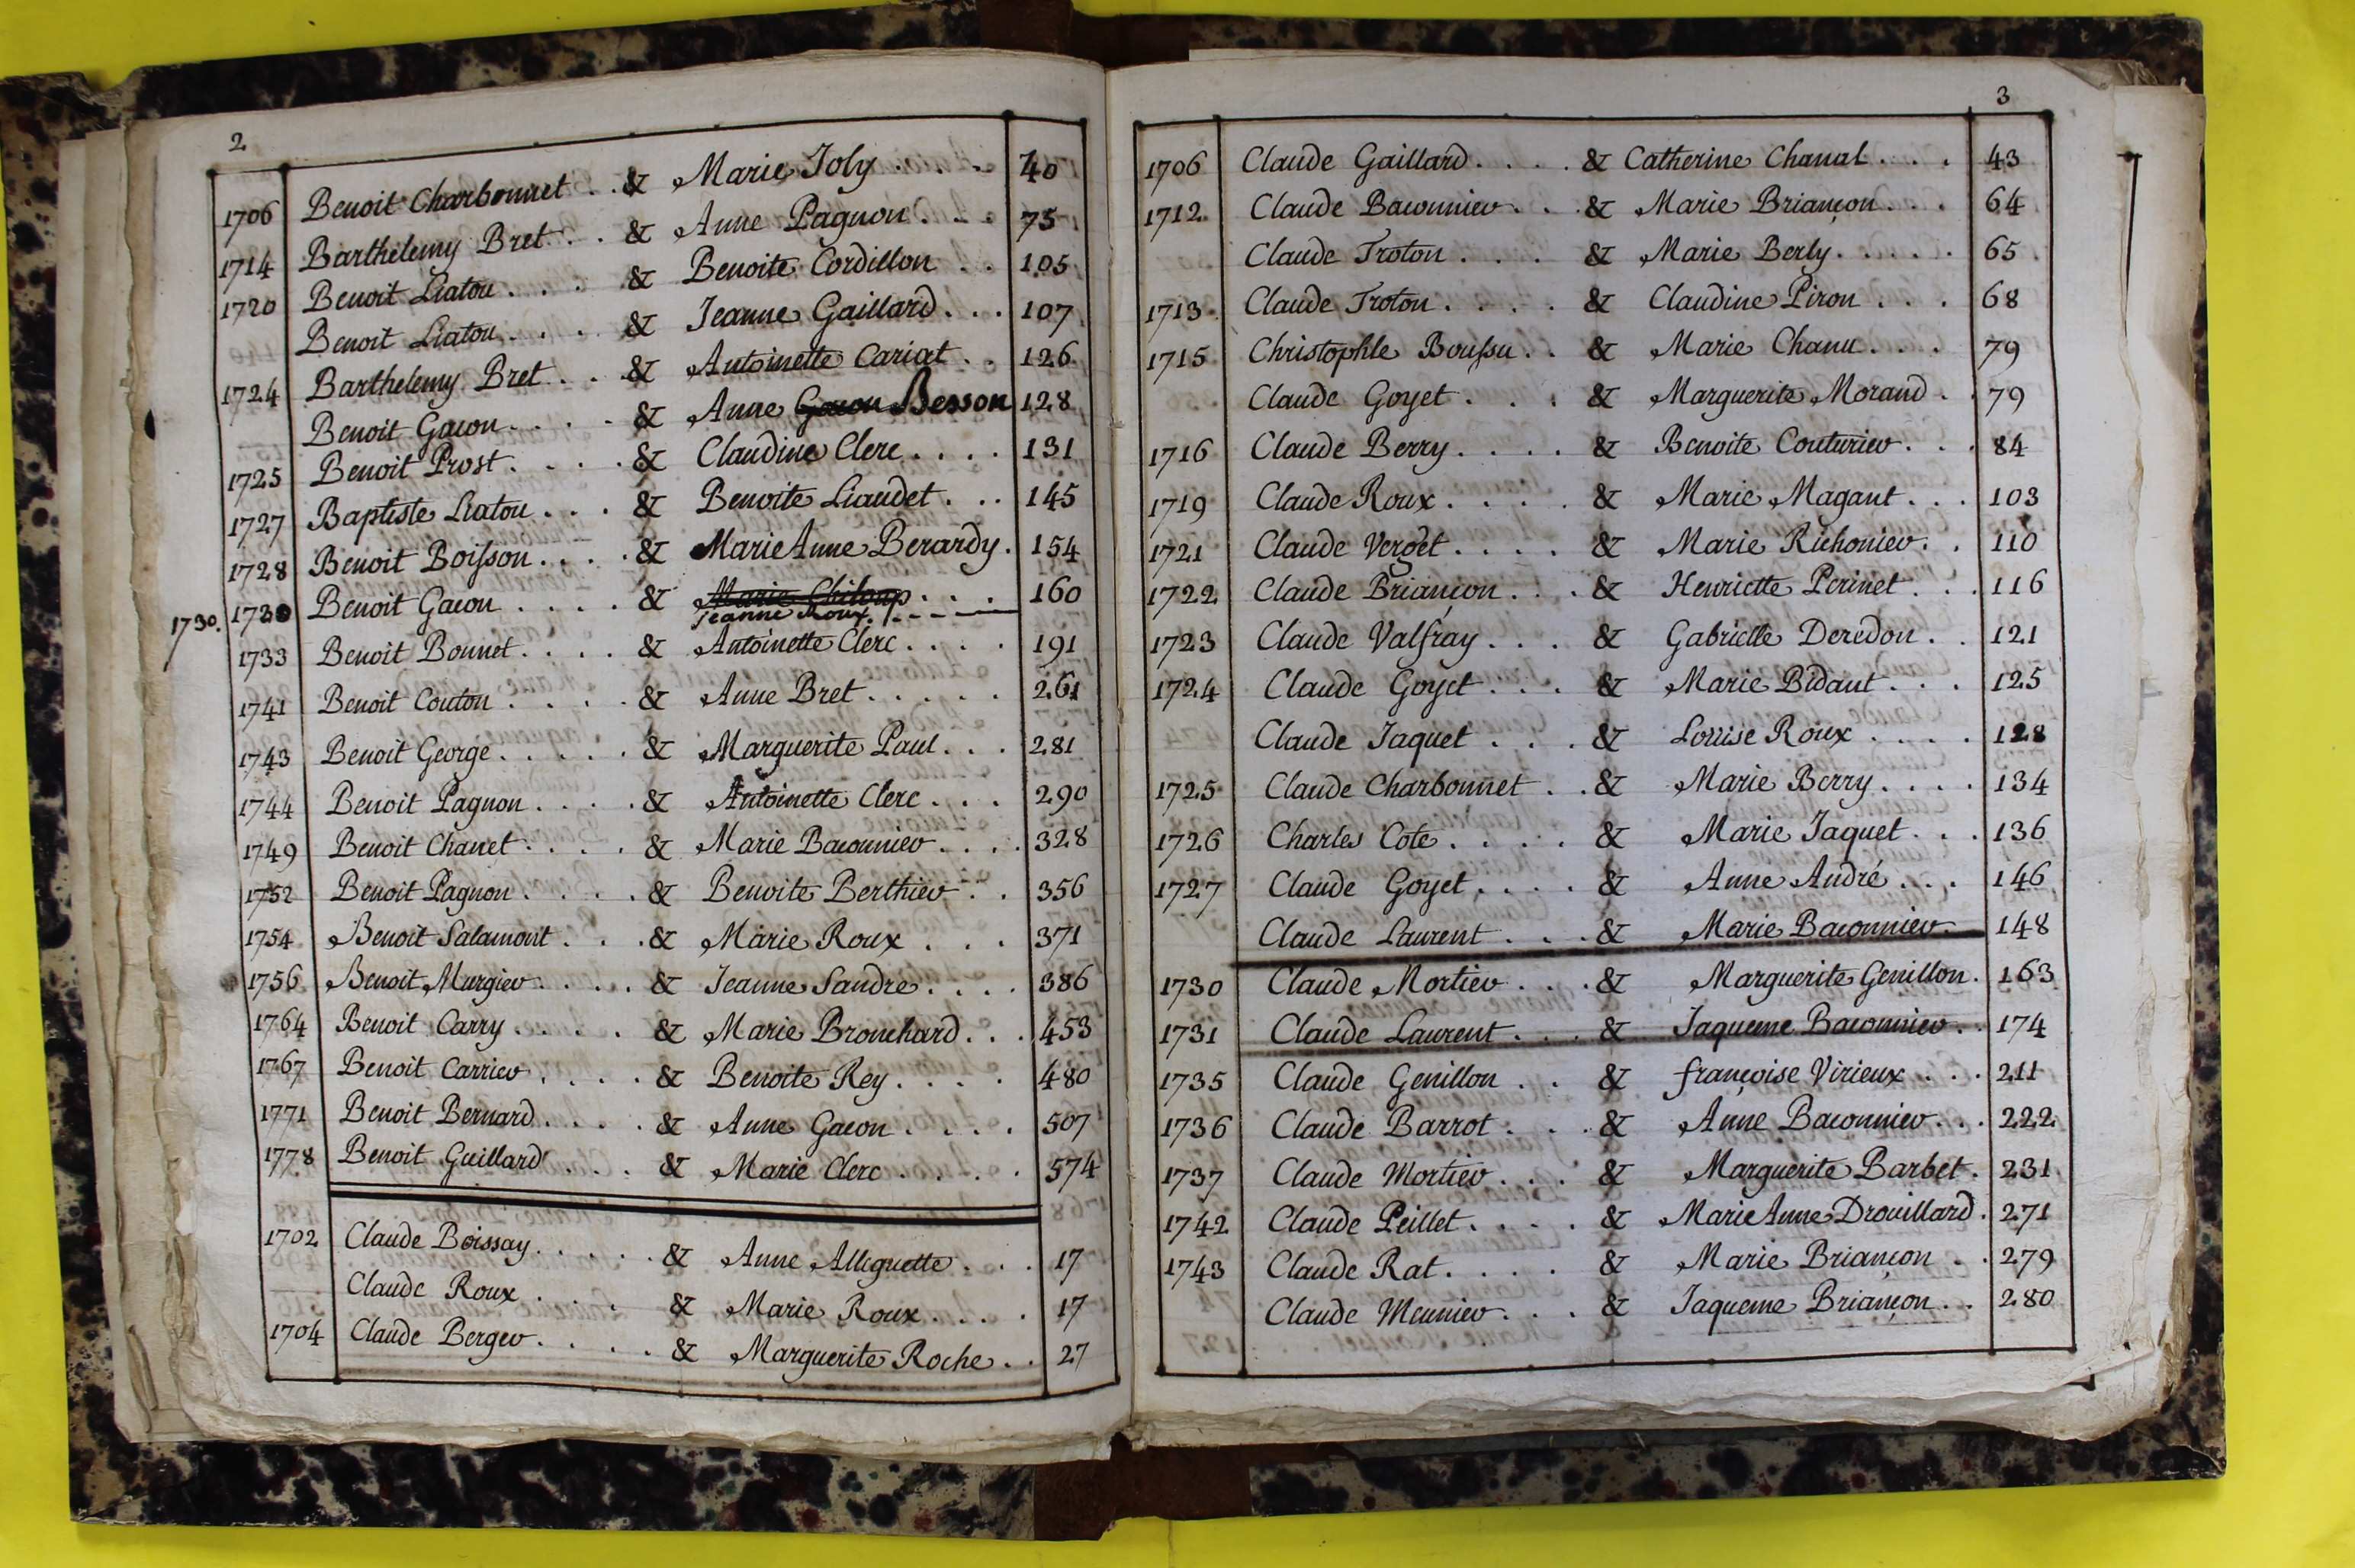 2
1706 Benoit Charbonnet . . & Marie Joly . . . 40
1714 Barthelemy Bret . . & Anne Pagnon . . . 75
1720 Benoit Liatou . . . & Benoite Cordillon . . 105
Benoit Liatou . . . & Jeanne Gaillard . . . 107
1724 Barthelemy Bret . . . & Antoinette Cariat . . 126
Benoit Gacon . . . . & Anne Gacon Besson 128
1725 Benoit Prost . . . . & Claudine Clerc . . . . 131
1727 Baptiste Liatou . . . & Benoite Liaudet . . . 145
1728 Benoit Boisson . . . . & Marie Anne Berardy . 154
1730. 1730 Benoit Gacon . . . . & Marie Chiloup . . . 160
Jeanne Roux.
1733 Benoit Bonnet . . . . & Antoinette Clerc . . . . 191
1741 Benoit Couton . . . . & Anne Bret . . . . . 261
1743 Benoit George . . . . . & Marguerite Paul . . . 281
1744 Benoit Pagnon . . . . & Antoinette Clerc . . . 290
1749 Benoit Chanet . . . . & Marie Baconnier . . . . 328
1752 Benoit Pagnon . . . . & Benoite Berthier . . 356
1754 Benoit Salamont . . . & Marie Roux . . . 371
1756 Benoit Murgier . . . . & Jeanne Sandre . . . . 386
1764 Benoit Carry . . . . & Marie Bronchard . . . 453
1767 Benoit Carrier . . . . & Benoite Rey . . . . 480
1771 Benoit Bernard . . . . & Anne Gacon . . . . 507
1778 Benoit Guillard . . . & Marie Clerc . . . . 574
1702 Claude Boissay . . . . . & Anne Alleguette . . . 17
Claude Roux . . . . & Marie Roux . . . . 17
1704 Claude Berger . . . . . & Marguerite Roche . . 27
3
1706 Claude Gaillard . . . . & Catherine Chanal . . . 43
1712 Claude Baconnier . . . & Marie Briançon . . . 64
Claude Troton . . . . & Marie Berly . . . . . 65
1713 Claude Troton . . . . & Claudine Piron . . . 68
1715 Christophle Boussu . . & Marie Chanu . . . 79
Claude Goyet . . . & Marguerite Morand . 79
1716 Claude Berry . . . . & Benoite Couturier . . . 84
1719 Claude Roux . . . . & Marie Magant . . . 103
1721 Claude Verdet . . . . & Marie Richonier . . 110
1722 Claude Briançon . . . & Henriette Perinet . . . 116
1723 Claude Valfray . . . & Gabrielle Deredon . . 121
1724 Claude Goyet . . . & Marie Bidaut . . . 125
Claude Jaquet . . . . & Louise Roux . . . . 128
1725 Claude Charbonnet . . & Marie Berry . . . . 134
1726 Charles Cote . . . . & Marie Jaquet . . . 136
1727 Claude Goyet . . . . & Anne André . . . 146
Claude Laurent . . . . & Marie Baconnier 148
1730 Claude Mortier . . . & Marguerite Genillon . 163
1731 Claude Laurent . . . & Jaqueme Baconnier . . 174
1735 Claude Genillon . . & françoise Virieux . . . 211
1736 Claude Barrot . . . & Anne Baconnier . . . 222
1737 Claude Mortier . . . & Marguerite Barbet . 231
1742 Claude Peillet . . . . & Marie Anne Drouillard . 271
1743 Claude Rat . . . . & Marie Briançon . . 279
Claude Meunier . . . & Jaqueme Briançon . . 280